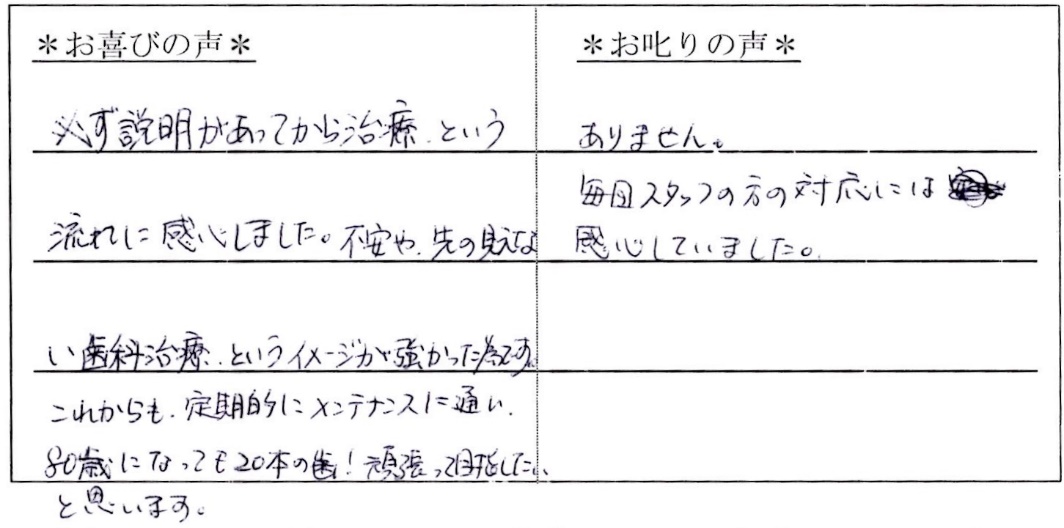 ＊お喜びの声＊
必ず説明があってから治療、という
流れに感心しました。不安や、先の見えな
い歯科治療、というイメージが強かった為です。
これからも、定期的にメンテナンスに通い、
80歳になっても20本の歯！頑張って目指したい
と思います。
＊お叱りの声＊
ありません。
毎回スタッフの方の対応には
感心していました。